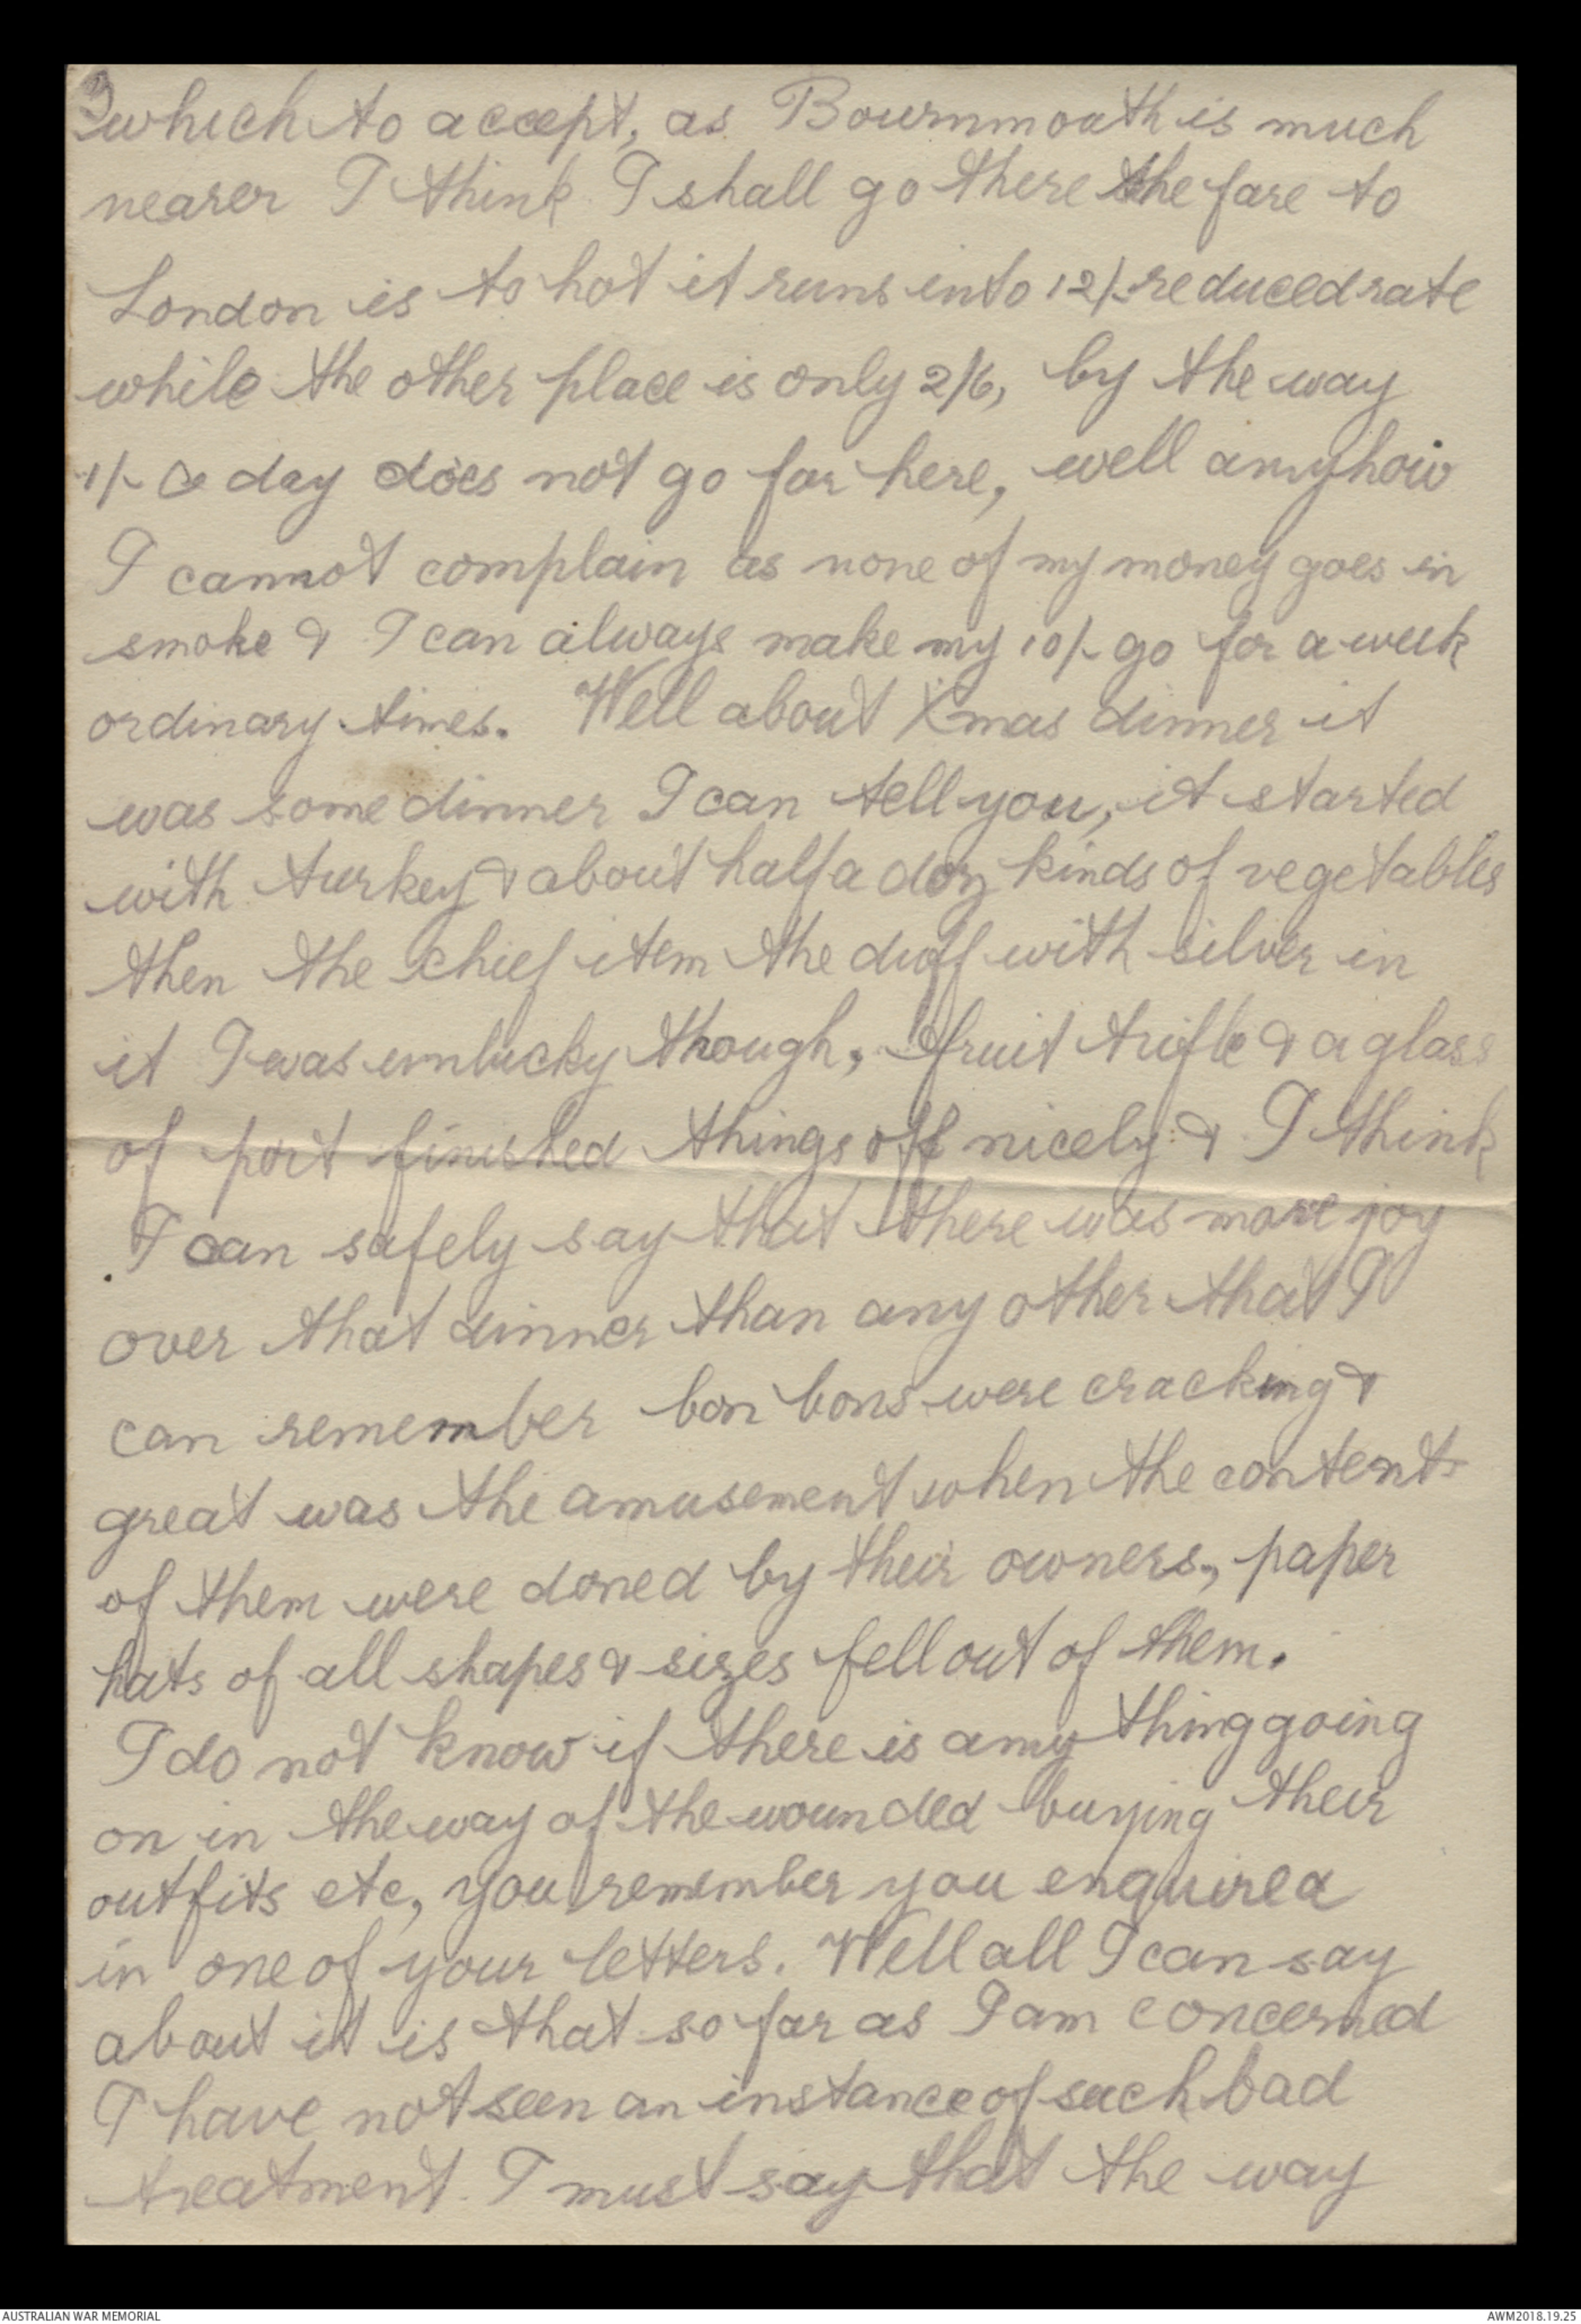 3
which to accept, as Bournmoath is much
nearer I think I shall go there the fare to
London is to hot it runs into 12/- reduced rate
while the other place is only 2/6, by the way
1/- a day does not go far here, well anyhow
I cannot complain as none of my money goes in
smoke & I can always make my 10/- go for a week
ordinary times. Well about Xmas dinner it
was some dinner I can tell you, it started
with turkey & about half a doz kinds of vegetables
then the chief item the duff with silver in
it I was unlucky though, fruit trifle & a glass
of port finished things off nicely & I think
I can safely say that there was more joy
over that dinner than any other that I
can remember bon bons were cracking &
great was the amusement when the contents
of them were doned by their owners, paper
hats of all shapes & sizes fell out of them.
I do not know if there is any thing going
on in the way of the wounded buying their
outfits etc, you remember you enquired
in one of your letters. Well all I can say
about it is that so far as I am concerned
I have not seen an instance of such bad
treatment. I must say that the way
AUSTRALIAN WAR MEMORIAL
AWM2018.19.25